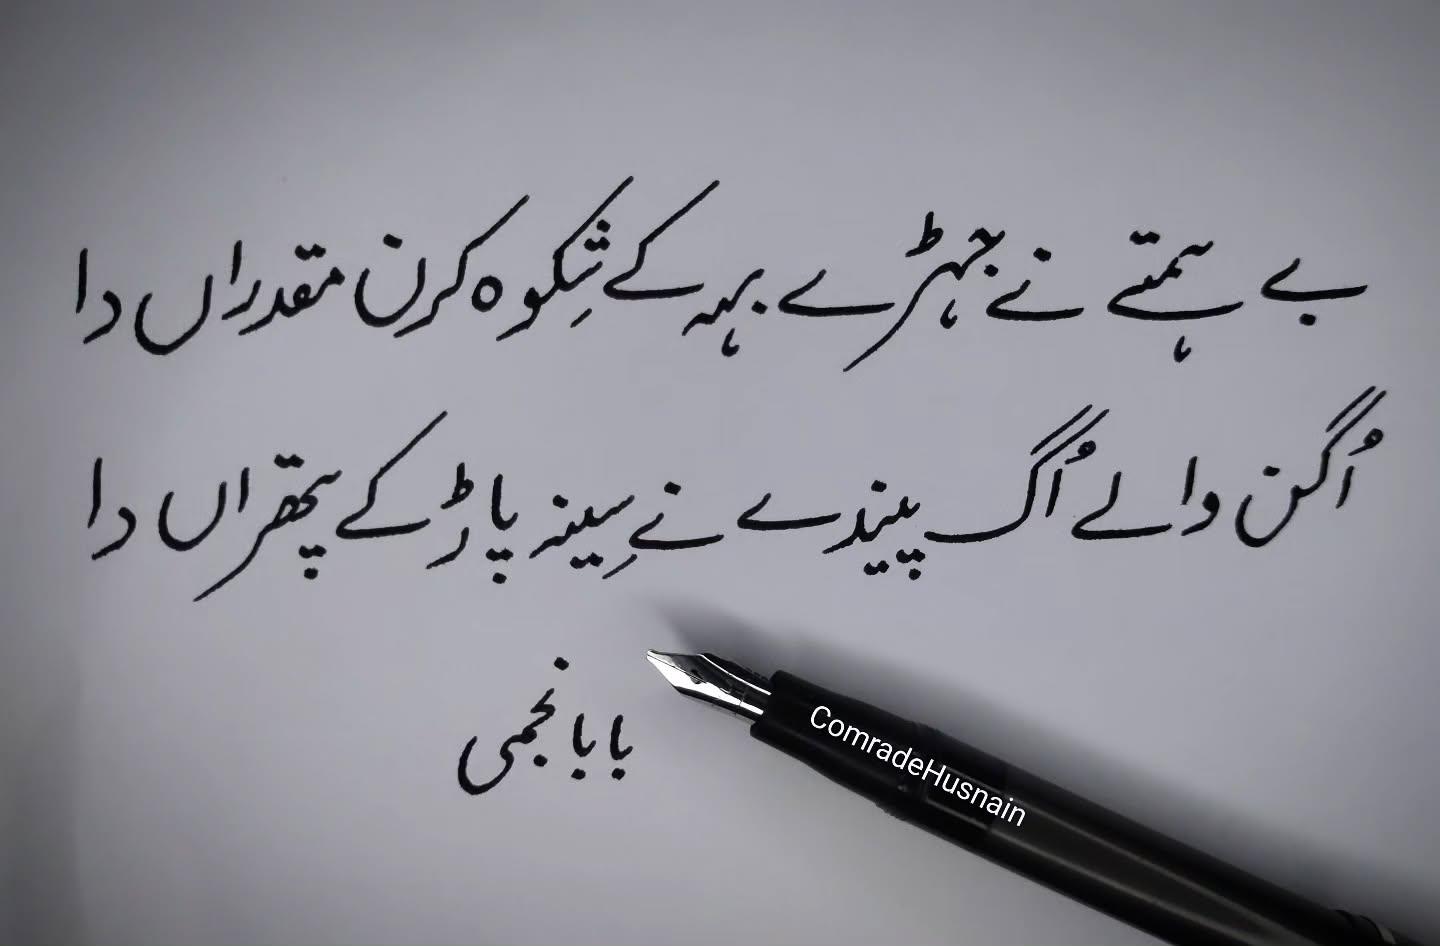 بے ہمتے نے جہڑے بہہ کے شِکوہ کرن مقدراں دا
اُگن والے اُگ پیندے نے سِینہ پاڑ کے پتھراں دا
بابا نجمی
ComradeHusnain